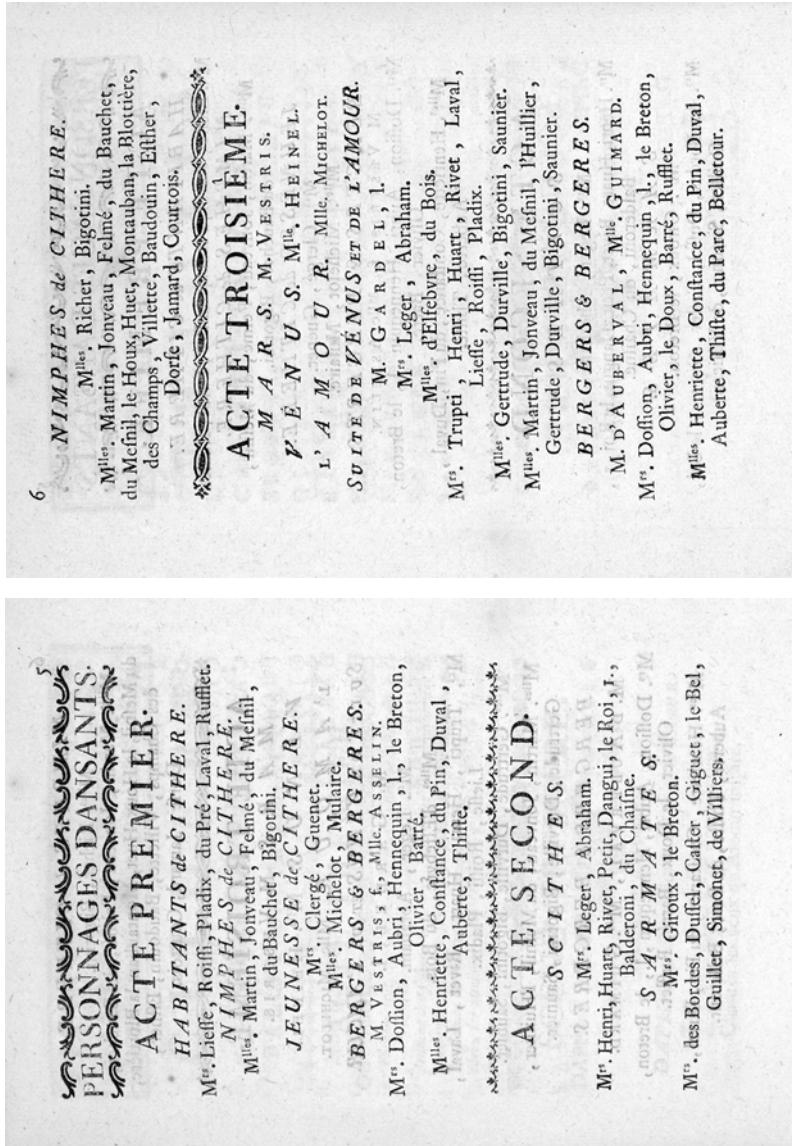 5
PERSONNAGES DANSANTS.
ACTE PREMIER.
HABITANTS de CITHERE.
Mrs. Liesse, Roissi, Pladix, du Pré, Laval, Rufflet.
NIMPHES de CITHERE.
Mlles. Martin, Jonveau, Felmé, du Mesnil,
du Bauchet, Bigotini.
JEUNESSE de CITHERE.
Mrs. Clergé, Guenet.
Mlles. Michelot, Mulaire.
BERGERS & BERGERES.
M. VESTRIS, f., Mlle. ASSELIN.
Mrs. Dossion, Aubri, Hennequin, l., le Breton,
Olivier, Barré.
Mlles. Henriette, Constance, du Pin, Duval,
Auberte, Thiste.
ACTE SECOND.
SCITHES.
Mrs. Leger, Abraham.
Mrs. Henri, Huart, Rivet, Petit, Dangui, le Roi, l.,
Balderoni, du Chaisne.
SARMATES.
Mrs. Giroux, le Breton.
Mrs. des Bordes, Dussel, Caster, Giguet, le Bel,
Guillet, Simonet, de Villiers.
6
NIMPHES de CITHERE.
Mlles. Richer, Bigotini.
Mlles. Martin, Jonveau, Felmé, du Bauchet,
du Mesnil, le Houx, Huet, Montauban, la Blottière,
des Champs, Villette, Baudouin, Esther,
Dorse, Jamard, Courtois.
ACTE TROISIÈME.
MARS. M. VESTRIS.
VÉNUS. Mlle. HEINEL.
L'AMOUR. Mlle. MICHELOT.
SUITE DE VÉNUS ET DE L'AMOUR.
M. GARDEL, l.
Mrs. Leger, Abraham.
Mlles. d'Elfebvre, du Bois.
Mrs. Trupti, Henri, Huart, Rivet, Laval,
Liesse, Roissi, Pladix.
Mlles. Gertrude, Durville, Bigotini, Saunier.
Mlles. Martin, Jonveau, du Mesnil, l'Huillier,
Gertrude, Durville, Bigotini, Saunier.
BERGERS & BERGERES.
M. D'AUBERVAL, Mlle. GUIMARD.
Mrs. Dossion, Aubri, Hennequin, l., le Breton,
Olivier, le Doux, Barré, Rufflet.
Mlles. Henriette, Constance, du Pin, Duval,
Auberte, Thiste, du Parc, Belletour.